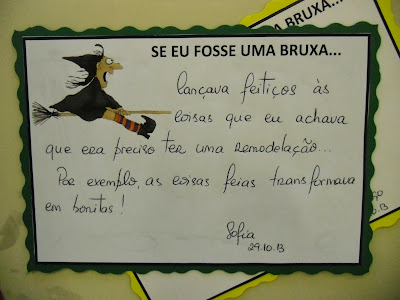 SE EU FOSSE UMA BRUXA...
lançava feitiços às
coisas que eu achava
que era preciso ter uma remodelação...
Por exemplo, as coisas feias transformava
em bonitas!
Sofia
29.10.13
SE EU FOSSE UMA BRUXA...